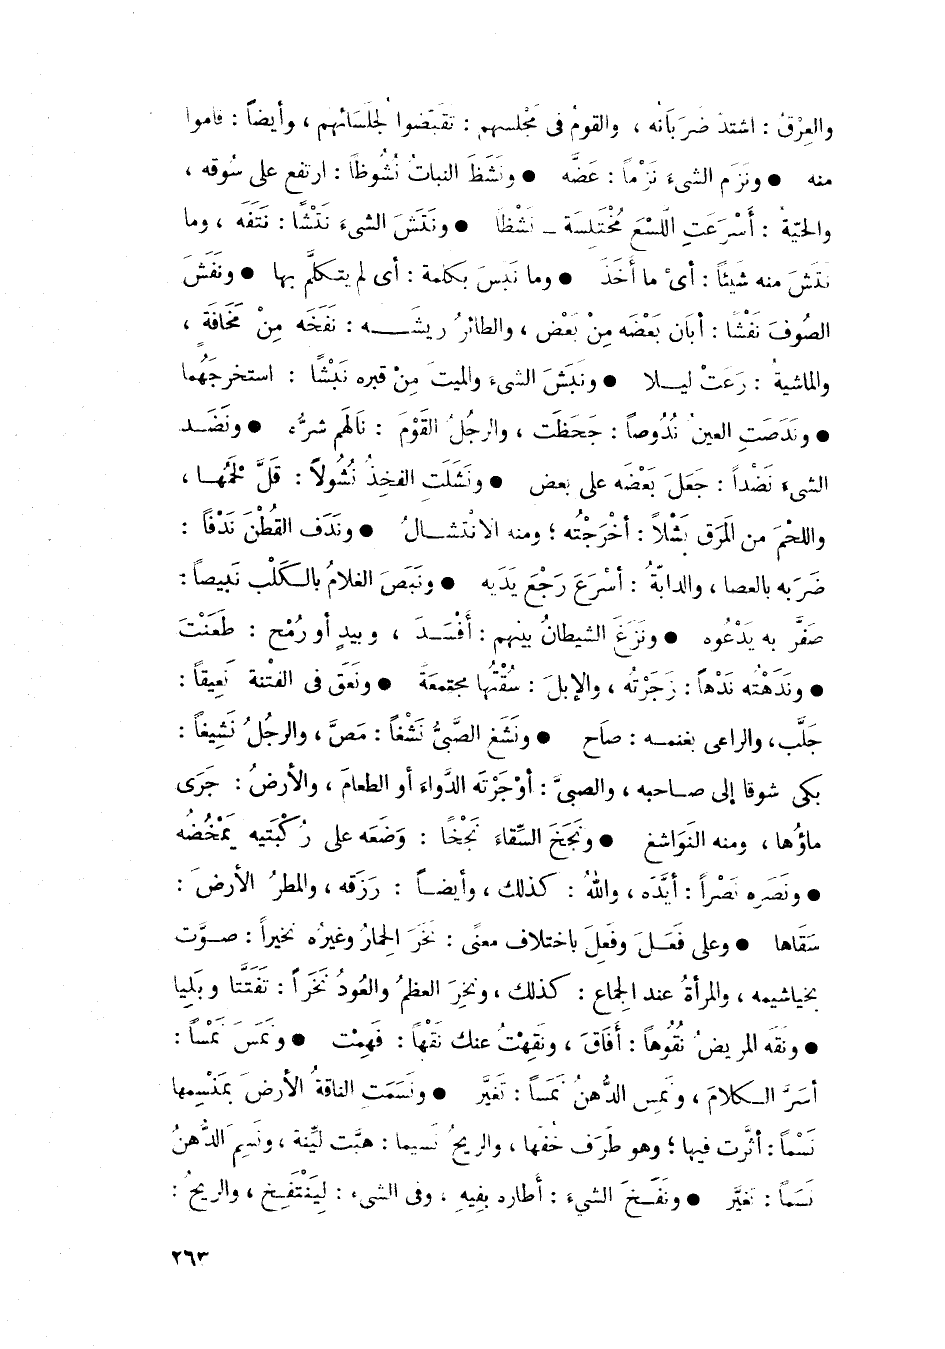 والعِرْقُ : اشتدّ ضَرَبَانُه ، والقومُ فى مَجْلسهم : تَقَبَّضوا لجُلَسَائهم ، وأيضاً : قاموا
منه ● ونَزَم الشىءَ نَزْماً : عَضَّه ● ونَشَظَ النباتُ نُشُوظًا : ارتفع على سُوقه ،
والحيّةُ : أَسْرَعَتِ اللَّسْعَ مُخْتَلِسَة ـ نَشْظًا ● ونَتَشَ الشىءَ نَتْشًا : نَتَفَه ، وما
نتَشَ منه شَيئاً : أىْ ما أَخَذَ ● وما نَبَسَ بكلمة : أى لم يتكلَّم بها ● ونَفَشَ
الصُوفَ نَفْشًا : أبَان بَعْضَه مِنْ بَعْض ، والطائرُ ريشَـــه : نَفَخَه مِنْ مَخَافَةٍ ،
والماشيةُ : رَعَتْ ليــلا ● ونَبَشَ الشىءَ والميتَ مِنْ قبره نَبْشًا : استخرجَهُما
● ونَدَصَتِ العينُ نُدُوصاً : جَحَظَت ، والرجُلُ القَوْمَ : نَالَهم شرُّه ● ونَضَـد
الشىءَ نَضْداً : جَعَلَ بَعْضَه على بعض ● ونَشَلَت الفخِذُ نُشُولاً : قَلَّ لَحْمُهـا ،
واللحْمَ من المَرَق نَشْلاً : أخْرَجْتُه ؛ ومنه الانْتشـــالُ ● ونَدَف القُطْنَ نَدْفاً :
ضَرَبه بالعصا ، والدابّةُ : أسْرَعَ رَجْعَ يَدَيه ● ونَبَصَ الغلامُ بالـكَلْب نَبيصاً :
صَفَّر به يَدْعُوه ● ونَزَغَ الشيطانُ بينهم : أَفْســدَ ، وبيدٍ أو رُمْح : طَعَنْتَ
● ونَدَهْتُه نَدْهاً : زَجَرْتُه ، والإبلَ : سُقْتُها مجتمعَةَ ● ونَعَق فى الفتْنة نَعِيقاً :
جَلَّب ، والراعى بغنمــه : صاَح ● ونَشَغ الصَّبىُّ نَشْغاً : مَصَّ ، والرجُلُ نَشِيغاً :
بكى شوقا إلى صـاحبه ، والصبىَّ : أوْجَرْتَه الدَّواءَ أو الطعامَ ، والأرضُ : جَرَى
ماؤُها ، ومنه النَوَاشغ ● ونَجَخَ السِّقاءَ نَجْخًا : وَضَعَه على رُكْبَتيه يَمْخُضُه
● ونَصَره نَصْراً : أيَّدَه ، واللهُ : كذلك ، وأيضـاً : رَزَقه ، والمطرُ الأرضَ :
سَقَاها ● وعلى فَعَــلَ وفَعِلَ باختلاف معنًى : نَخَرَ الحِمارُ وغيرُه نخيراً : صــوَّت
بخياشيمه ، والمرأةُ عند الجِماع : كذلك ، ونخِرَ العظمُ والعُودُ نَخَراً : تَفَتَّتَا وبَلِيا
● ونَقَه المريضُ نُقُوهاً : أَفَاقَ ، ونَقِهْتُ عنك نَقْهاً : فَهِمْت ● ونَمَسَ نَمْساً :
أسَرَّ الـكلامَ ، ونَمِس الدُّهنُ نَمَساً : تَغيَّر ● ونَسَمَت الناقةُ الأرضَ بمَنْسِمها
نَسْماً : أثَّرت فيها ؛ وهو طَرَف خُفّها ، والريحُ نَسيما : هبَّت ليِّنة ، ونَسِمَ الدُّهنُ
نَسَماً : تغيَّر ● ونَفَــخَ الشيءَ : أطاره بفِيهِ ، وفى الشىء : لِيَنْتَفِخ ، والريحُ :
٢٦٣